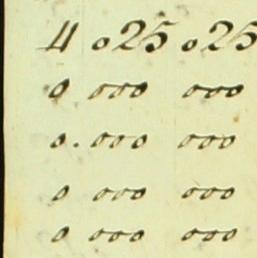 4 025 025
0 000 000
0. 000 000
0 000 000
0 000 000